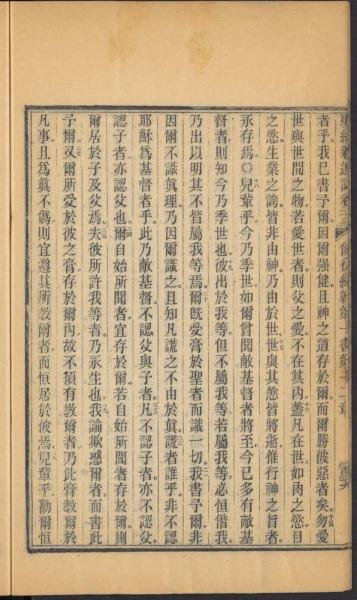 第一書第二章
者乎我已書于爾因爾强健且神之道存於爾而爾勝彼惡者矣勿愛
世與世間之物若愛世者則父之愛不在其內蓋凡在世如肉之慾目
之慾生業之誇皆非由神乃由於世世與其慾皆將逝惟行神之旨者
永存焉○兒輩乎今乃季世如爾曾聞敵基督者將至今已多有敵基
督者則知今乃季世也彼出於我等但不屬我等若屬我等必恒偕我
乃出以明其不皆屬我等焉爾既受膏於聖者而識一切我書于爾非
因爾不識眞理乃因爾識之且知凡謊之不由於眞謊者誰乎非不認
耶穌爲基督者乎此乃敵基督不認父與子者凡不認子者亦不認父
認子者亦認父也爾自始所聞者宜存於爾若自始所聞者存於爾則
爾居於子及父焉夫彼所許我等者乃永生也我論欺惑爾者而書此
于爾又爾所受於彼之膏存於爾內故不須有教爾者乃此膏教爾於
凡事且爲眞不僞則宜遵其所教爾者而恒居於彼焉兒輩乎勸爾恒